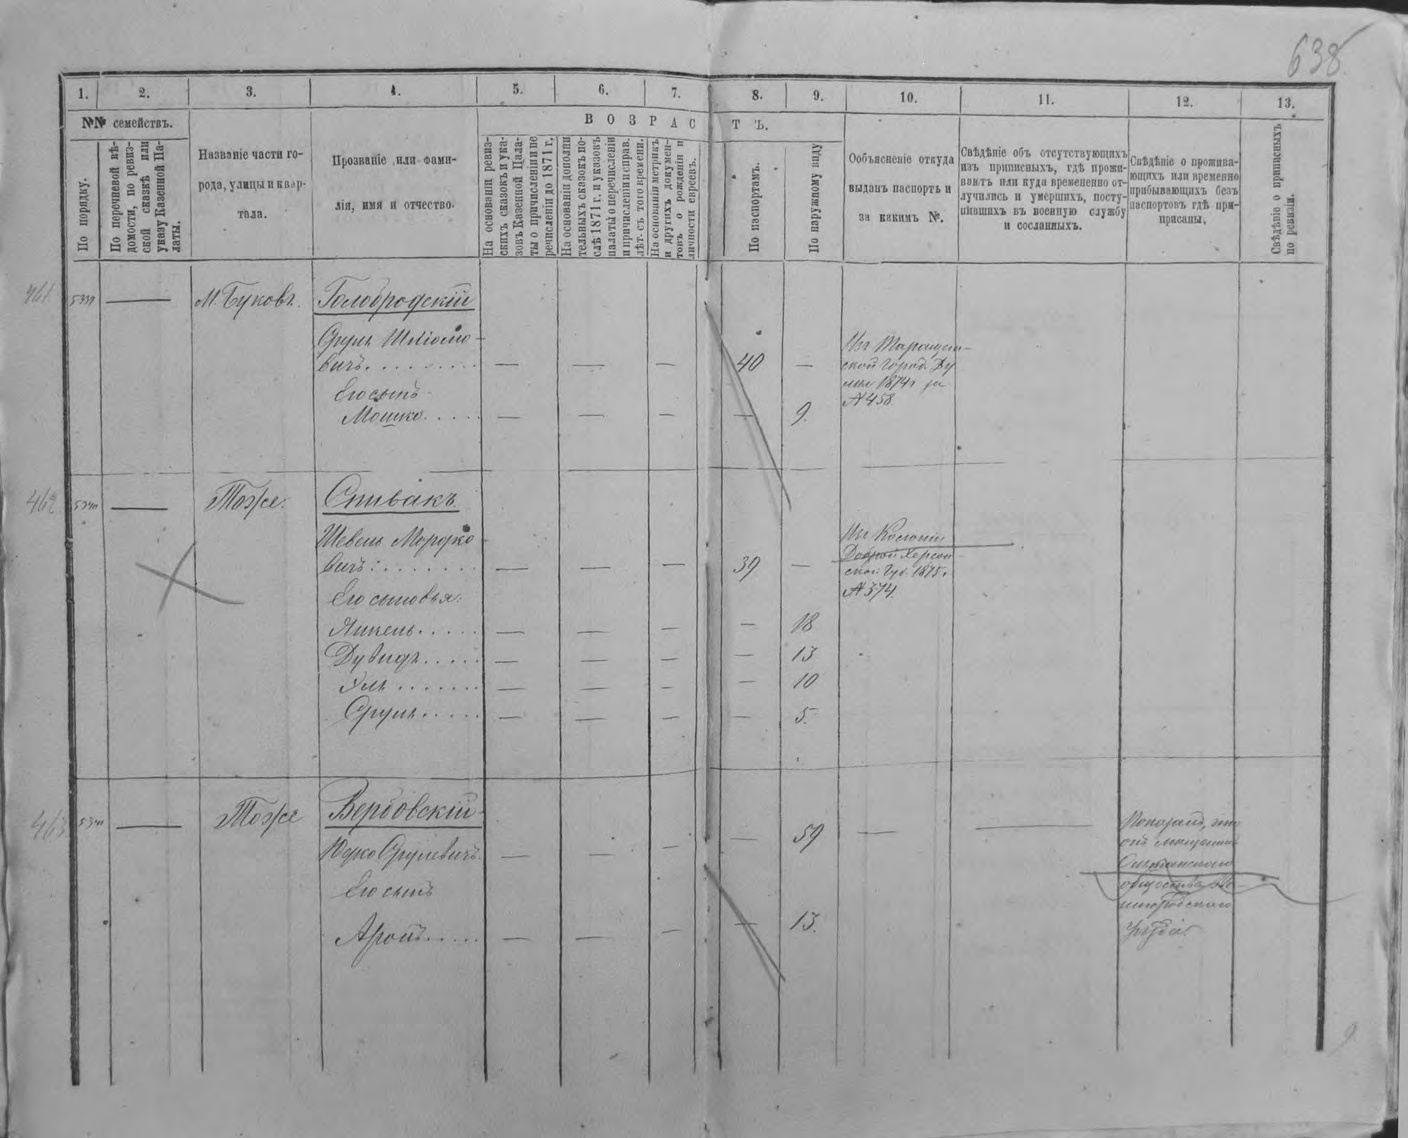 638
1. 2. 3. 4. 5. 6. 7. 8. 9. 10. 11. 12. 13.
№№ семействъ.
По порядку.
По перечневой вѣ-
домости, по ревиз-
ской сказкѣ или
указу Казенной Па-
латы.
Названіе части го-
рода, улицы и квар-
тала.
Прозваніе или фами-
лія, имя и отчество.
ВОЗРАСТЪ.
На основаніи ревиз-
скихъ сказокъ и ука-
зовъ Казенной Пала-
ты о причисленіи и пе
речисленіи до 1871 г.
На основаніи дополни
тельныхъ сказокъ по-
слѣ 1871 г. и указовъ
палаты о перечисленіи
и причисленіи и справ.
лѣт. съ того времени.
На основаніи метрикъ
и другихъ докумен-
товъ о рожденіи и
личности евреевъ.
По паспортамъ.
По наружному виду
Объясненіе откуда
выданъ паспортъ и
за какимъ №.
Свѣдѣніе объ отсутствующихъ
изъ приписныхъ, гдѣ прожи-
ваютъ или куда временено от-
лучились и умершихъ, посту-
пившихъ въ военную службу
и сосланныхъ.
Свѣдѣніе о прожива-
ющихъ или временно
прибывающихъ безъ
паспортовъ гдѣ при-
писаны.
Свѣдѣніе о приписныхъ
по ревизіи.
461 5339 — М. Буковъ. Голобродскій
Срулъ Шліомо-
вичъ — — — 40 —
Изъ Таращан-
ской Город. Ду
мы 1874 г за
№ 458
Его сынъ
Мошко — — — — 9.
462 5340 — Тоже. Спивакъ
Шевель Мордко
вичъ — — — 39 —
Херсон-
ской Губ. 1875 г.
№ 374
Его сыновья:
Янкель — — — — 18
Дувидъ — — — — 13
— — — — 10
Срулъ — — — — 5.
463 5341 — Тоже Вербовскій
Юдко Срулевичъ — — — — 59 — —
Показалъ, что
онъ мещанинъ
общества Зве-
нигородскаго
уѣзда.
Его сынъ
Аронъ — — — — 13.
9